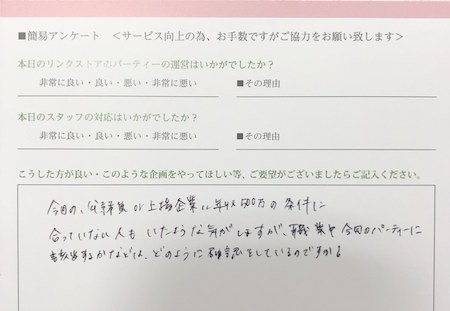 ■簡易アンケート <サービス向上の為、お手数ですがご協力をお願い致します>
本日のリンクストアのパーティーの運営はいかがでしたか？
非常に良い・良い・悪い・非常に悪い ■その理由
本日のスタッフの対応はいかがでしたか？
非常に良い・良い・悪い・非常に悪い ■その理由
こうした方が良い・このような企画をやってほしい等、ご要望がございましたらご記入ください。
今日の、公務員or上場企業or年収500万の条件に
合っていない人もいたような気がしますが、職業や今回のパーティーに
かなどは、どのように確認をしているのですか？